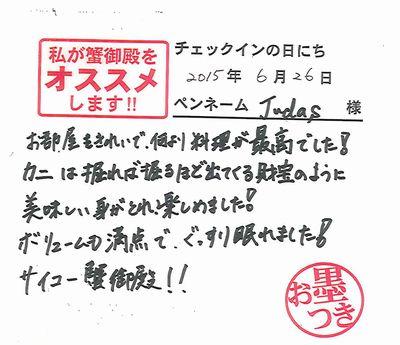 私が蟹御殿を
オススメ
します!!
チェックインの日にち
2015年 6月 26日
ペンネーム Judas 様
お部屋もきれいで、何より料理が最高でした!
カニは掘れば掘るほど出てくる財宝のように
美味しい身がとれ楽しめました!
ボリュームも満点で、ぐっすり眠れました!
サイコー蟹御殿!!
お墨つき